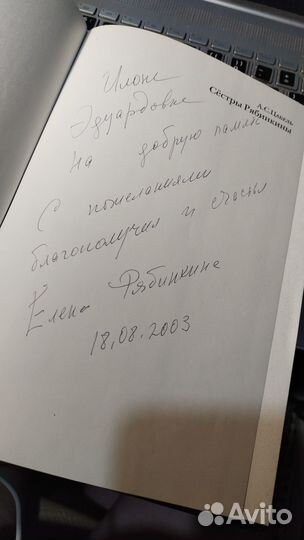 А.С.Цабель
Сёстры Рябинкины
Илоне
Эдуардовне
на добрую память
С пожеланиями
благополучия и счастья
Елена Рябинкина
18.08.2003
Avito